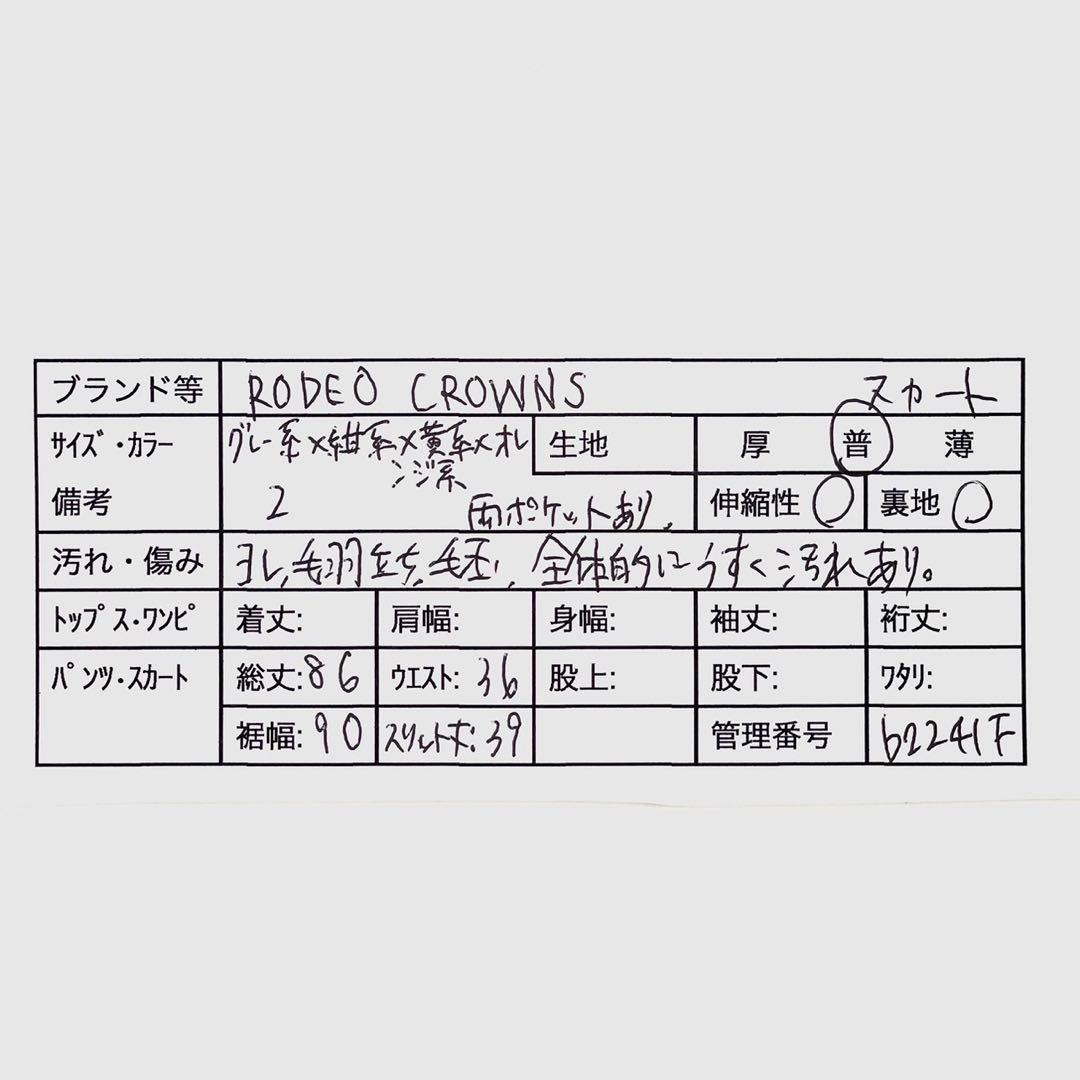 ブランド等 RODEO CROWNS スカート
サイズ・カラー グレー系×紺系×黄系×オレ 生地 厚 普 薄
ンジ系
備考 2 両ポケットあり。 伸縮性 〇 裏地 〇
汚れ・傷み ヨレ、毛羽立ち、毛玉、全体的にうすく汚れあり。
トップス・ワンピ 着丈: 肩幅: 身幅: 袖丈: 裄丈:
パンツ・スカート 総丈:86 ウエスト:36 股上: 股下: ワタリ:
裾幅:90 スリット丈:39 管理番号 b2241F